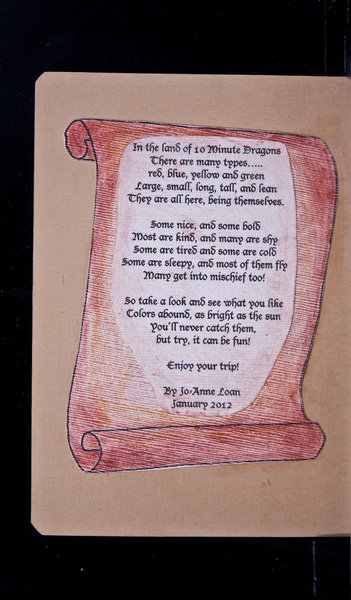 In the land of 10 Minute Dragons
There are many types.....
red, blue, yellow and green
Large, small, long, tall, and lean
They are all here, being themselves.
Some nice, and some bold
Most are kind, and many are shy
Some are tired and some are cold
Some are sleepy, and most of them fly
Many get into mischief too!
So take a look and see what you like
Colors abound, as bright as the sun
You'll never catch them,
but try, it can be fun!
Enjoy your trip!
By Jo-Anne Loan
January 2012